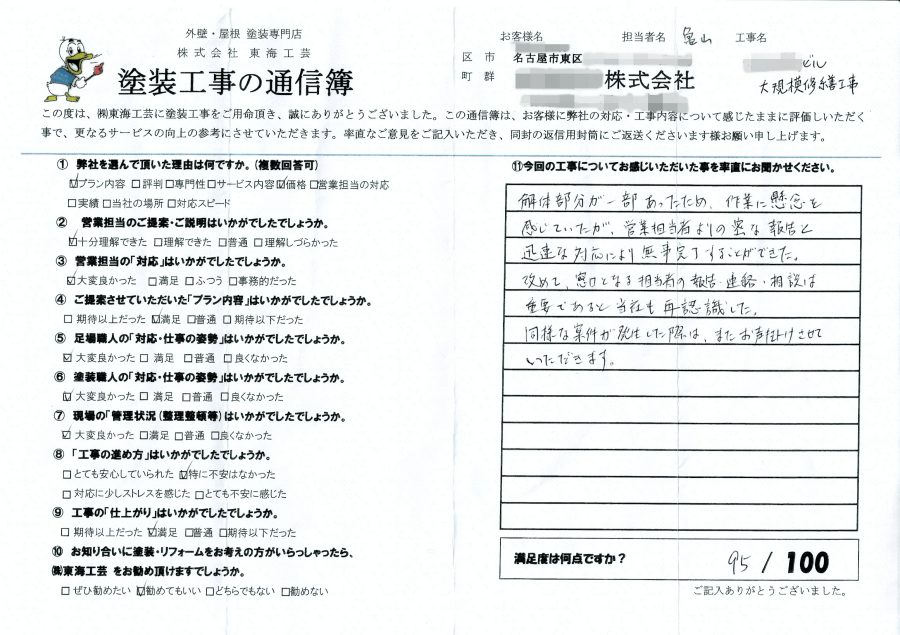 外壁・屋根 塗装専門店
株式会社 東海工芸
塗装工事の通信簿
お客様名 担当者名 亀山 工事名
区 市 名古屋市東区
町 群 株式会社
ビル
大規模修繕工事
この度は、㈱東海工芸に塗装工事をご用命頂き、誠にありがとうございました。この通信簿は、お客様に弊社の対応・工事内容について感じたままに評価しいただく
事で、更なるサービスの向上の参考にさせていただきます。率直なご意見をご記入いただき、同封の返信用封筒にご返送くださいます様お願い申し上げます。
① 弊社を選んで頂いた理由は何ですか。(複数回答可)
☑プラン内容 □評判 □専門性 □サービス内容 ☑価格 □営業担当の対応
□実績 □当社の場所 □対応スピード
② 営業担当のご提案・ご説明はいかがでしたでしょうか。
☑十分理解できた □理解できた □普通 □理解しづらかった
③ 営業担当の「対応」はいかがでしたでしょうか。
☑大変良かった □満足 □ふつう □事務的だった
④ ご提案させていただいた「プラン内容」はいかがでしたでしょうか。
□期待以上だった ☑満足 □普通 □期待以下だった
⑤ 足場職人の「対応・仕事の姿勢」はいかがでしたでしょうか。
☑大変良かった □満足 □普通 □良くなかった
⑥ 塗装職人の「対応・仕事の姿勢」はいかがでしたでしょうか。
☑大変良かった □満足 □普通 □良くなかった
⑦ 現場の「管理状況(整理整頓等)はいかがでしたでしょうか。
☑大変良かった □満足 □普通 □良くなかった
⑧ 「工事の進め方」はいかがでしたでしょうか。
□とても安心していられた ☑特に不安はなかった
□対応に少しストレスを感じた □とても不安に感じた
⑨ 工事の「仕上がり」はいかがでしたでしょうか。
□期待以上だった ☑満足 □普通 □期待以下だった
⑩ お知り合いに塗装・リフォームをお考えの方がいらっしゃったら、
㈱東海工芸 をお勧め頂けますでしょうか。
□ぜひ勧めたい ☑勧めてもいい □どちらでもない □勧めない
⑪今回の工事についてお感じいただいた事を率直にお聞かせください。
解体部分が一部あったため、作業に懸念を
感じていたが、営業担当者よりの密な報告と
迅速な対応により無事完了することができた。
改めて、窓口となる担当者の報告・連絡・相談は
重要であると当社も再認識した。
同様な案件が発生した際は、またお声掛けさせて
いただきます。
満足度は何点ですか？ 95 / 100
ご記入ありがとうございました。